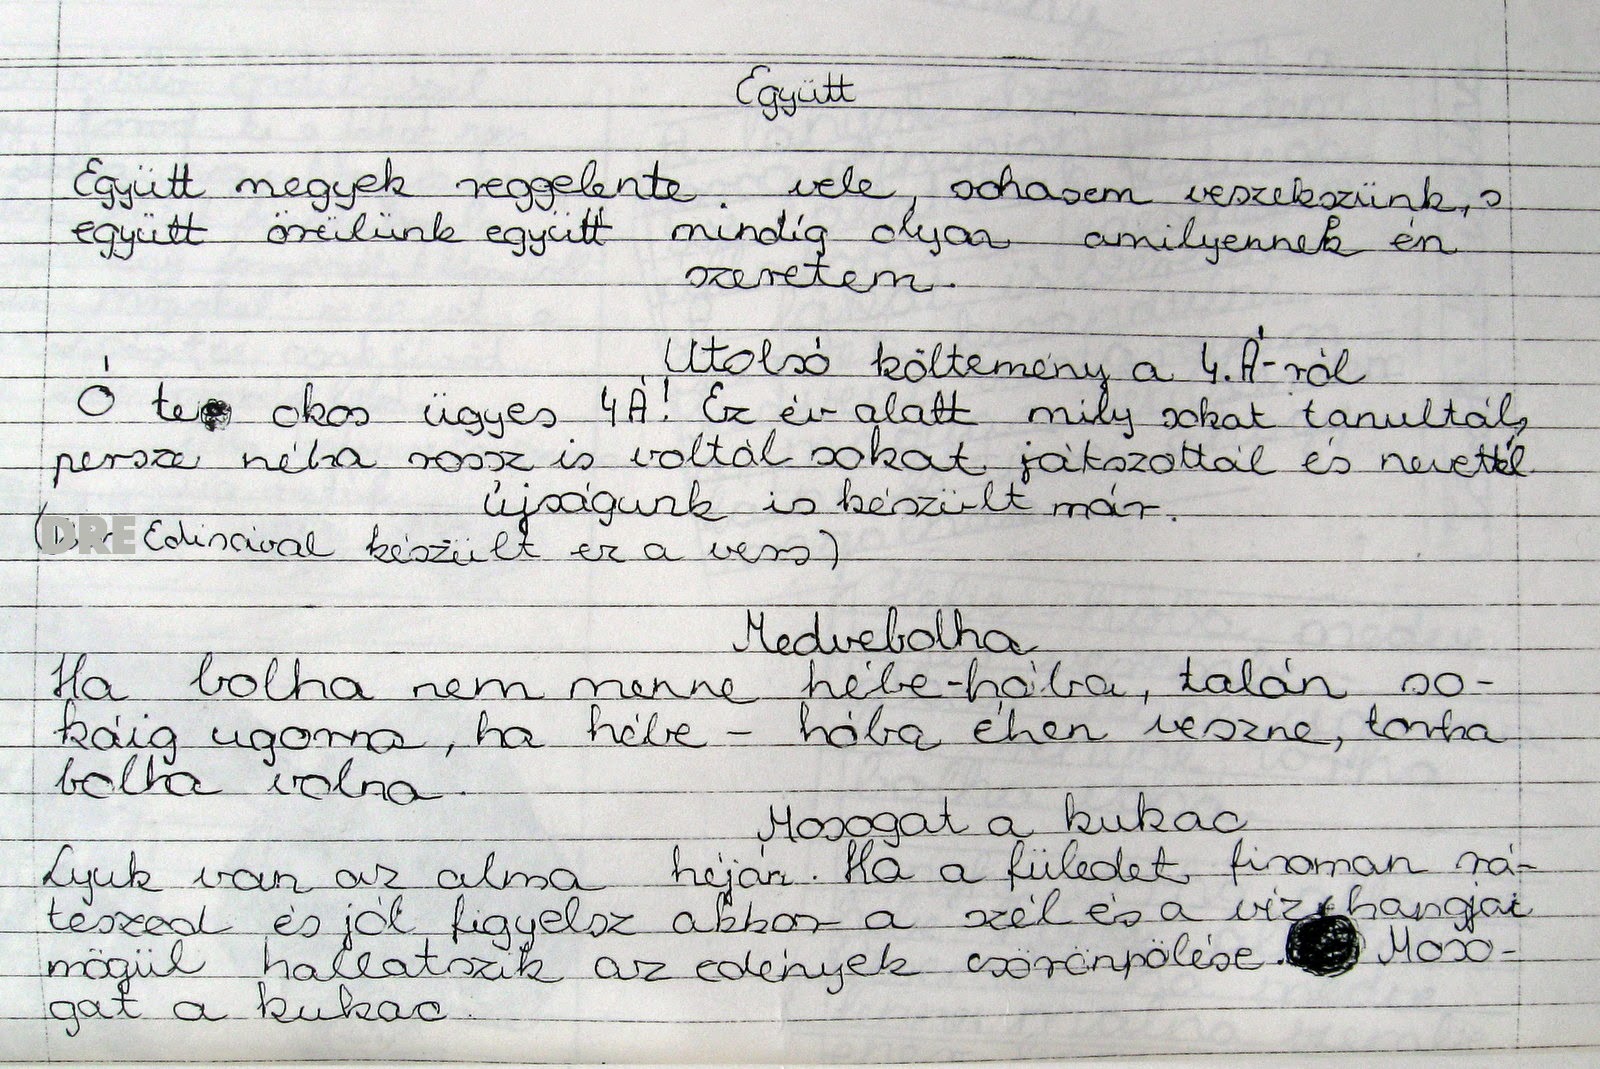 Együtt
Együtt megyek reggelente. vele, sohasem veszekszünk, s
együtt örülünk együtt mindíg olyan amilyennek én
szeretem.
Utolsó költemény a 4.Á-ról
Ó te okos ügyes 4Á! Ez év alatt mily sokat tanultál,
persze néha rossz is voltál sokat játszottál és nevettél
újságunk is készült már.
(DRE Edinával készült ez a vers)
Medvebolha
Ha bolha nem menne hébe-hóba, talán so-
káig ugorna, ha hébe - hóba éhen veszne, torha
bolha volna.
Mosogat a kukac
Lyuk van az alma héján. Ha a füledet finoman rá-
teszed és jól figyelsz akkor a szél és a víz hangjai
mögül hallatszik az edények csörömpölése. Moso-
gat a kukac.